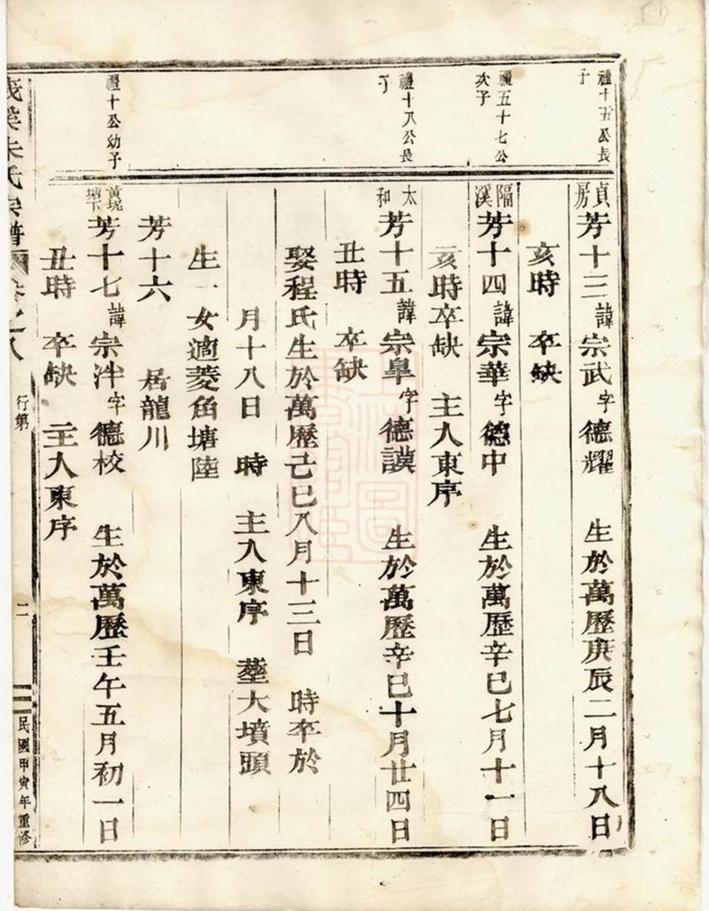 禮十五公長子
貞房芳十三諱宗武字德耀 生於萬曆庚辰二月十八日
亥時 卒缺
禮五十七公次子
隔溪芳十四諱宗華字德中 生於萬曆辛巳七月十一日
亥時卒缺 主入東序
禮十八公長子
太和芳十五諱宗皐字德謨 生於萬曆辛巳十月廿四日
丑時 卒缺
娶程氏生於萬曆己巳八月十三日 時卒於
月十八日 時 主入東序 塟大墳頭
生一女適菱角塘陸
芳十六 居龍川
禮十公幼子
黃墈塘下芳十七諱宗泮字德校 生於萬曆壬午五月初一日
丑時 卒缺 主入東序
朱氏宗譜 卷之八 行第 二 民國甲寅年重修